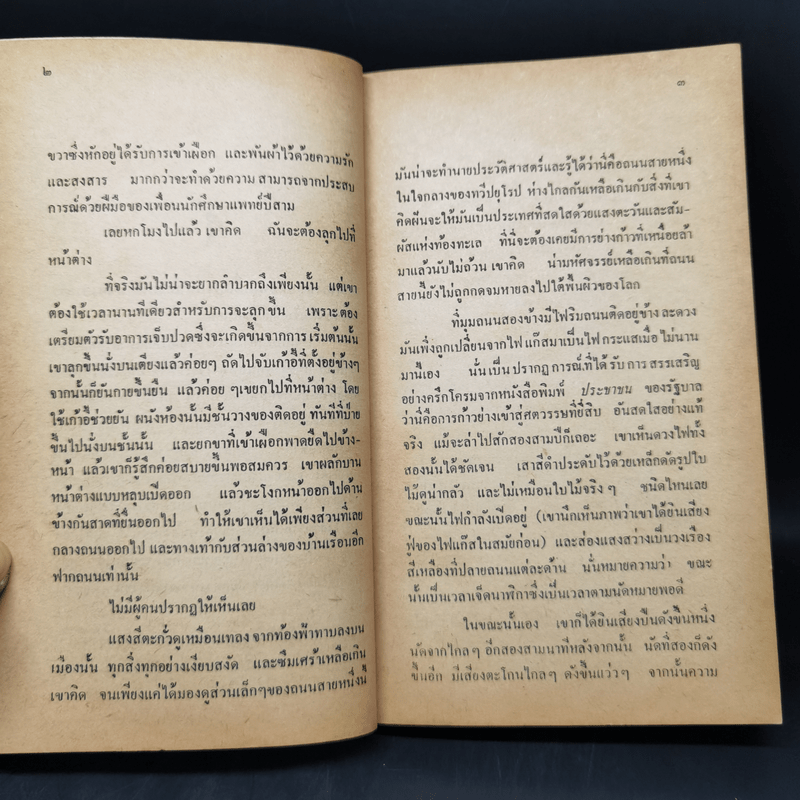 ๒
ขวาซึ่งหักอยู่ได้รับการเข้าเฝือก และพันผ้าไว้ด้วยความรัก
และสงสาร มากกว่าจะทำด้วยความสามารถจากประสบ
การณ์ด้วยฝีมือของเพื่อนนักศึกษาแพทย์ปีสาม
เลยหกโมงไปแล้ว เขาคิด ฉันจะต้องลุกไปที่
หน้าต่าง
ที่จริงมันไม่น่าจะยากลำบากถึงเพียงนั้น แต่เขา
ต้องใช้เวลานานทีเดียวสำหรับการจะลุกขึ้น เพราะต้อง
เตรียมตัวรับอาการเจ็บปวดซึ่งจะเกิดขึ้นจากการเริ่มต้นนั้น
เขาลุกขึ้นนั่งบนเตียงแล้วค่อยๆ ถัดไปจับเก้าอี้ที่ตั้งอยู่ข้างๆ
จากนั้นก็ยันกายขึ้นยืน แล้วค่อย ๆเขยกไปที่หน้าต่าง โดย
ใช้เก้าอี้ช่วยยัน ผนังห้องนั้นมีชั้นวางของติดอยู่ ทันทีที่ป่าย
ขึ้นไปนั่งบนชั้นนั้น และยกขาที่เข้าเฝือกพาดยืดไปข้าง-
หน้า แล้วเขาก็รู้สึกค่อยสบายขึ้นพอสมควร เขาผลักบาน
หน้าต่างแบบหลุบเปิดออก แล้วชะโงกหน้าออกไปด้าน
ข้างกันสาดที่ยื่นออกไป ทำให้เขาเห็นได้เพียงส่วนที่เลย
กลางถนนออกไป และทางเท้ากับส่วนล่างของบ้านเรือนอีก
ฟากถนนเท่านั้น
ไม่มีผู้คนปรากฏให้เห็นเลย
แสงสีตะกั่วดูเหมือนเทลง จากท้องฟ้าทาบลงบน
เมืองนั้น ทุกสิ่งทุกอย่างเงียบสงัด และซึมเศร้าเหลือเกิน
เขาคิด จนเพียงแค่ได้มองดูส่วนเล็กๆของถนนสายหนึ่งนี้
๓
มันน่าจะทำนายประวัติศาสตร์และรู้ได้ว่านี่คือถนนสายหนึ่ง
ในใจกลางของทวีปยุโรป ห่างไกลกันเหลือเกินกับสิ่งที่เขา
คิดฝันจะให้มันเป็นประเทศที่สดใสด้วยแสงตะวันและสัม-
ผัสแห่งท้องทะเล ที่นี่จะต้องเคยมีการย่างก้าวที่เหนื่อยล้า
มาแล้วนับไม่ถ้วน เขาคิด น่ามหัศจรรย์เหลือเกินที่ถนน
สายนี้ยังไม่ถูกกดจมหายลงไปใต้พื้นผิวของโลก
ที่มุมถนนสองข้างมีไฟริมถนนติดอยู่ข้าง ละดวง
มันเพิ่งถูกเปลี่ยนจากไฟ แก๊สมาเป็นไฟ กระแสเมื่อ ไม่นาน
มานี้เอง นั่น เป็น ปรากฏ การณ์ ที่ได้ รับ การ สรรเสริญ
อย่างครึกโครมจากหนังสือพิมพ์ ประชาชน ของรัฐบาล
ว่านี่คือการก้าวย่างเข้าสู่ศตวรรษที่ยี่สิบ อันสดใสอย่างแท้
จริง แม้จะล่าไปสักสองสามปีก็เถอะ เขาเห็นดวงไฟทั้ง
สองนั้นได้ชัดเจน เสาสีดำประดับไว้ด้วยเหล็กดัดรูปใบ
ไม้ดูน่ากลัว และไม่เหมือนใบไม้จริงๆ ชนิดไหนเลย
ขณะนั้นไฟกำลังเปิดอยู่ (เขานึกเห็นภาพว่าเขาได้ยินเสียง
ฟู่ของไฟแก๊สในสมัยก่อน) และส่องแสงสว่างเป็นวงเรือง
สีเหลืองที่ปลายถนนแต่ละด้าน นั่นหมายความว่า ขณะ
นั้นเป็นเวลาเจ็ดนาฬิกาซึ่งเป็นเวลาตามนัดหมายพอดี
ในขณะนั้นเอง เขาก็ได้ยินเสียงปืนดังขึ้นหนึ่ง
นัดจากไกลๆ อีกสองสามนาทีหลังจากนั้น นัดที่สองก็ดัง
ขึ้นอีก มีเสียงตะโกนไกลๆ ดังขึ้นแว่วๆ จากนั้นความ